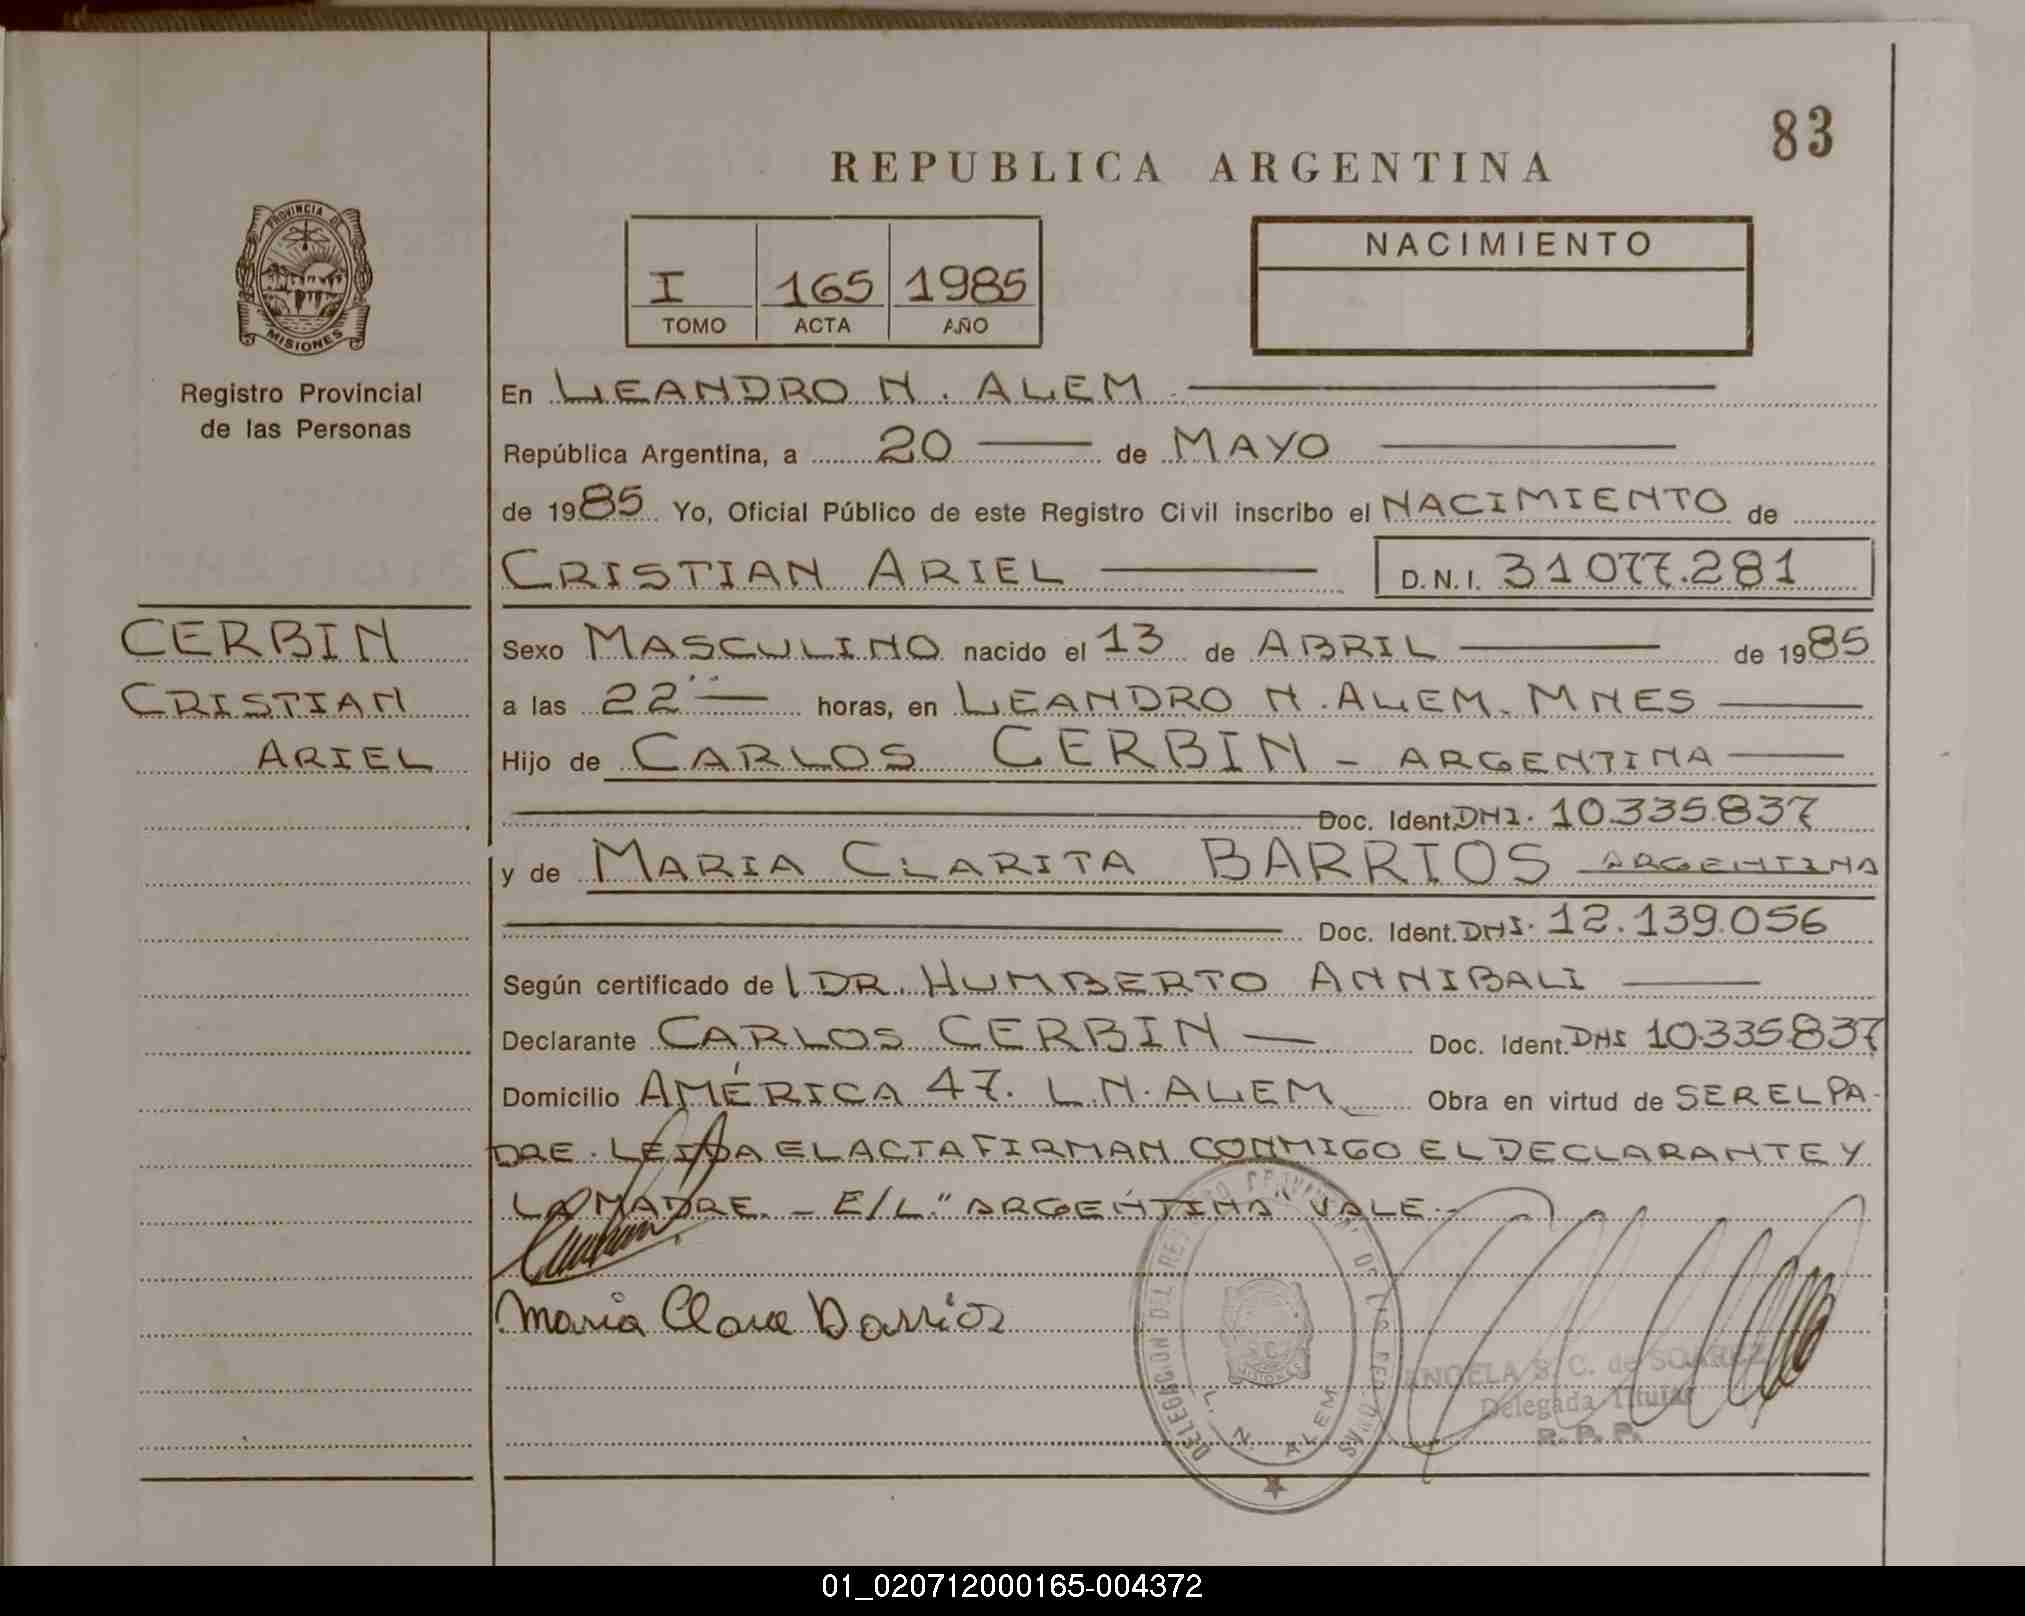 83
REPUBLICA ARGENTINA
PROVINCIA DE
MISIONES
Registro Provincial
de las Personas
I 165 1985
TOMO ACTA AÑO
NACIMIENTO
En LEANDRO N. ALEM
República Argentina, a 20 de MAYO
de 1985 Yo, Oficial Público de este Registro Civil inscribo el NACIMIENTO de
CRISTIAN ARIEL D.N.I. 31077.281
CERBIN
CRISTIAN
ARIEL
Sexo MASCULINO nacido el 13 de ABRIL de 1985
a las 22 horas, en LEANDRO N. ALEM. MNES
Hijo de CARLOS CERBIN - ARGENTINA
Doc. Ident. DNI. 10.335.837
y de MARIA CLARITA BARRIOS ARGENTINA
Doc. Ident. DNI. 12.139.056
Según certificado de l DR. HUMBERTO ANNIBALI
Declarante CARLOS CERBIN Doc. Ident. DNI 10.335837
Domicilio AMÉRICA 47. L.N. ALEM Obra en virtud de SER EL PA-
DRE. LEIDA EL ACTA FIRMAN CONMIGO EL DECLARANTE Y
LA MADRE. - E/L." ARGENTINA" VALE.-
Maria Clara Barrios
DELEGACION DEL REGISTRO PROVINCIAL DE LAS PERSONAS
MISIONES
L. N. ALEM
ANGELA S. C. de SOAREZ
Delegada Titular
R. P. P.
01_020712000165-004372